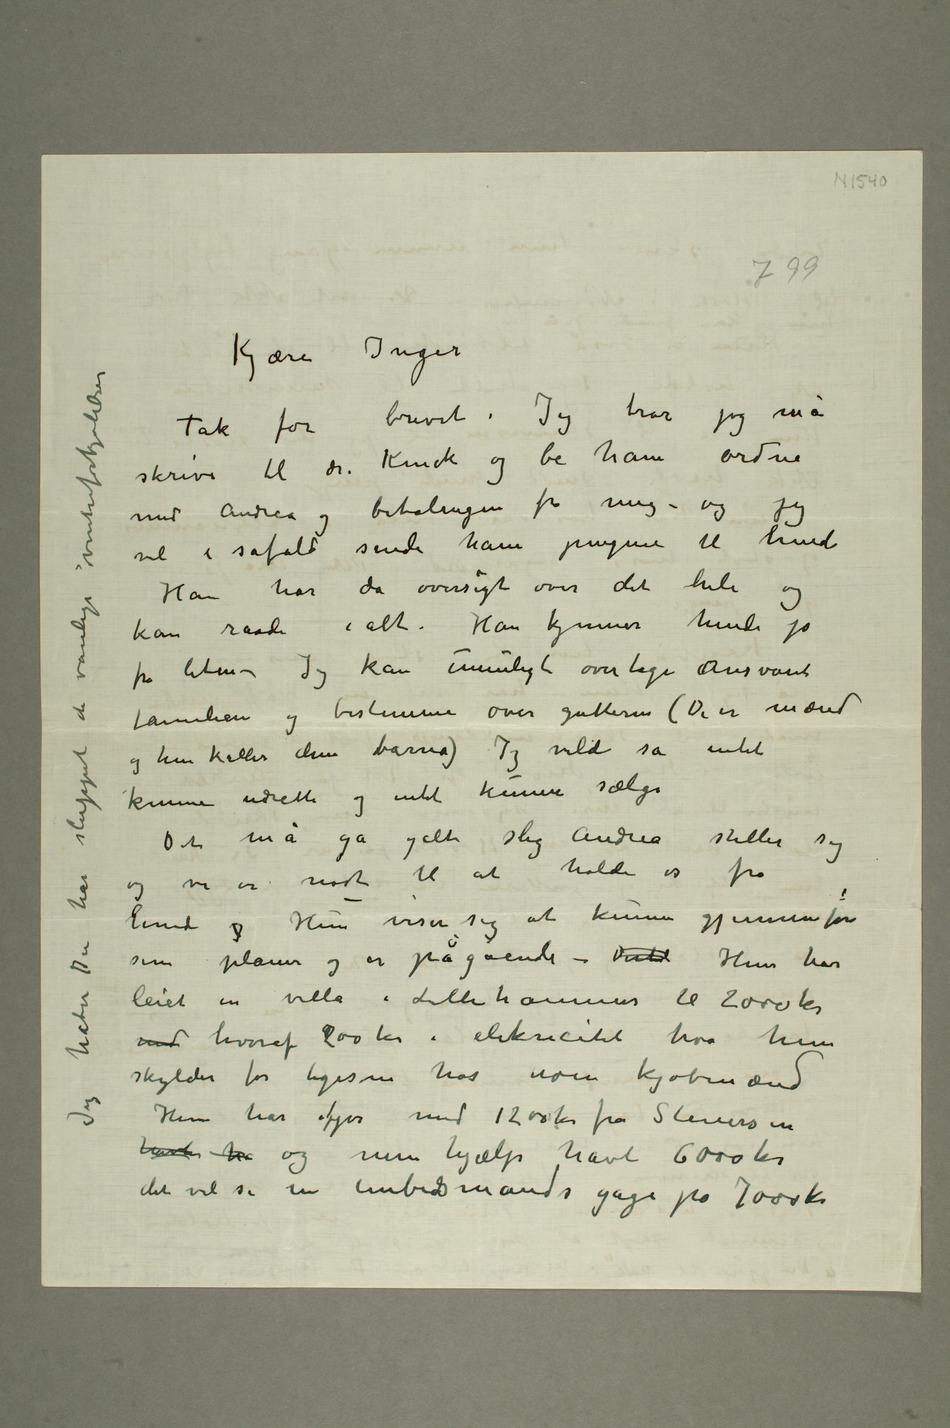 N 1540
799
Kjære Inger
Tak for brevet. Jeg tror jeg må
skrive til dr. Kinck og be ham ordne
med Andrea og betalingen fra meg – og jeg
vil i såfald sende ham pengene til hende
Han har da oversigt over det hele og
kan raade i alt. Han kjenner hende jo
fra liten – Jeg kan umuligt overtage ansvaret
familien og bestemme over gutterne (De er mænd
og hun kaller dem barna) Jeg vilde så intet
kunne udrette og intet kunne sælge
Det må gå galt slig Andrea stiller sig
og vi er nødt til at holde os fra
hende og Hun viser sig at kunne gjennemføre
sine planer og er pågående – Hun har
leiet en villa i Lillehammer til 2000 kr
med hvoraf 200 kr i elekricitet hva hun
skylder for ligesom hos noen kjøbmænd
Hun har ifjor med 1200 kr fra Stenersen
og min hjælp havt 6000 kr
det vil si en embedsmands gage på 7000 kr
Jeg håber Du har sluppet de vanlige vinterforkjølelser